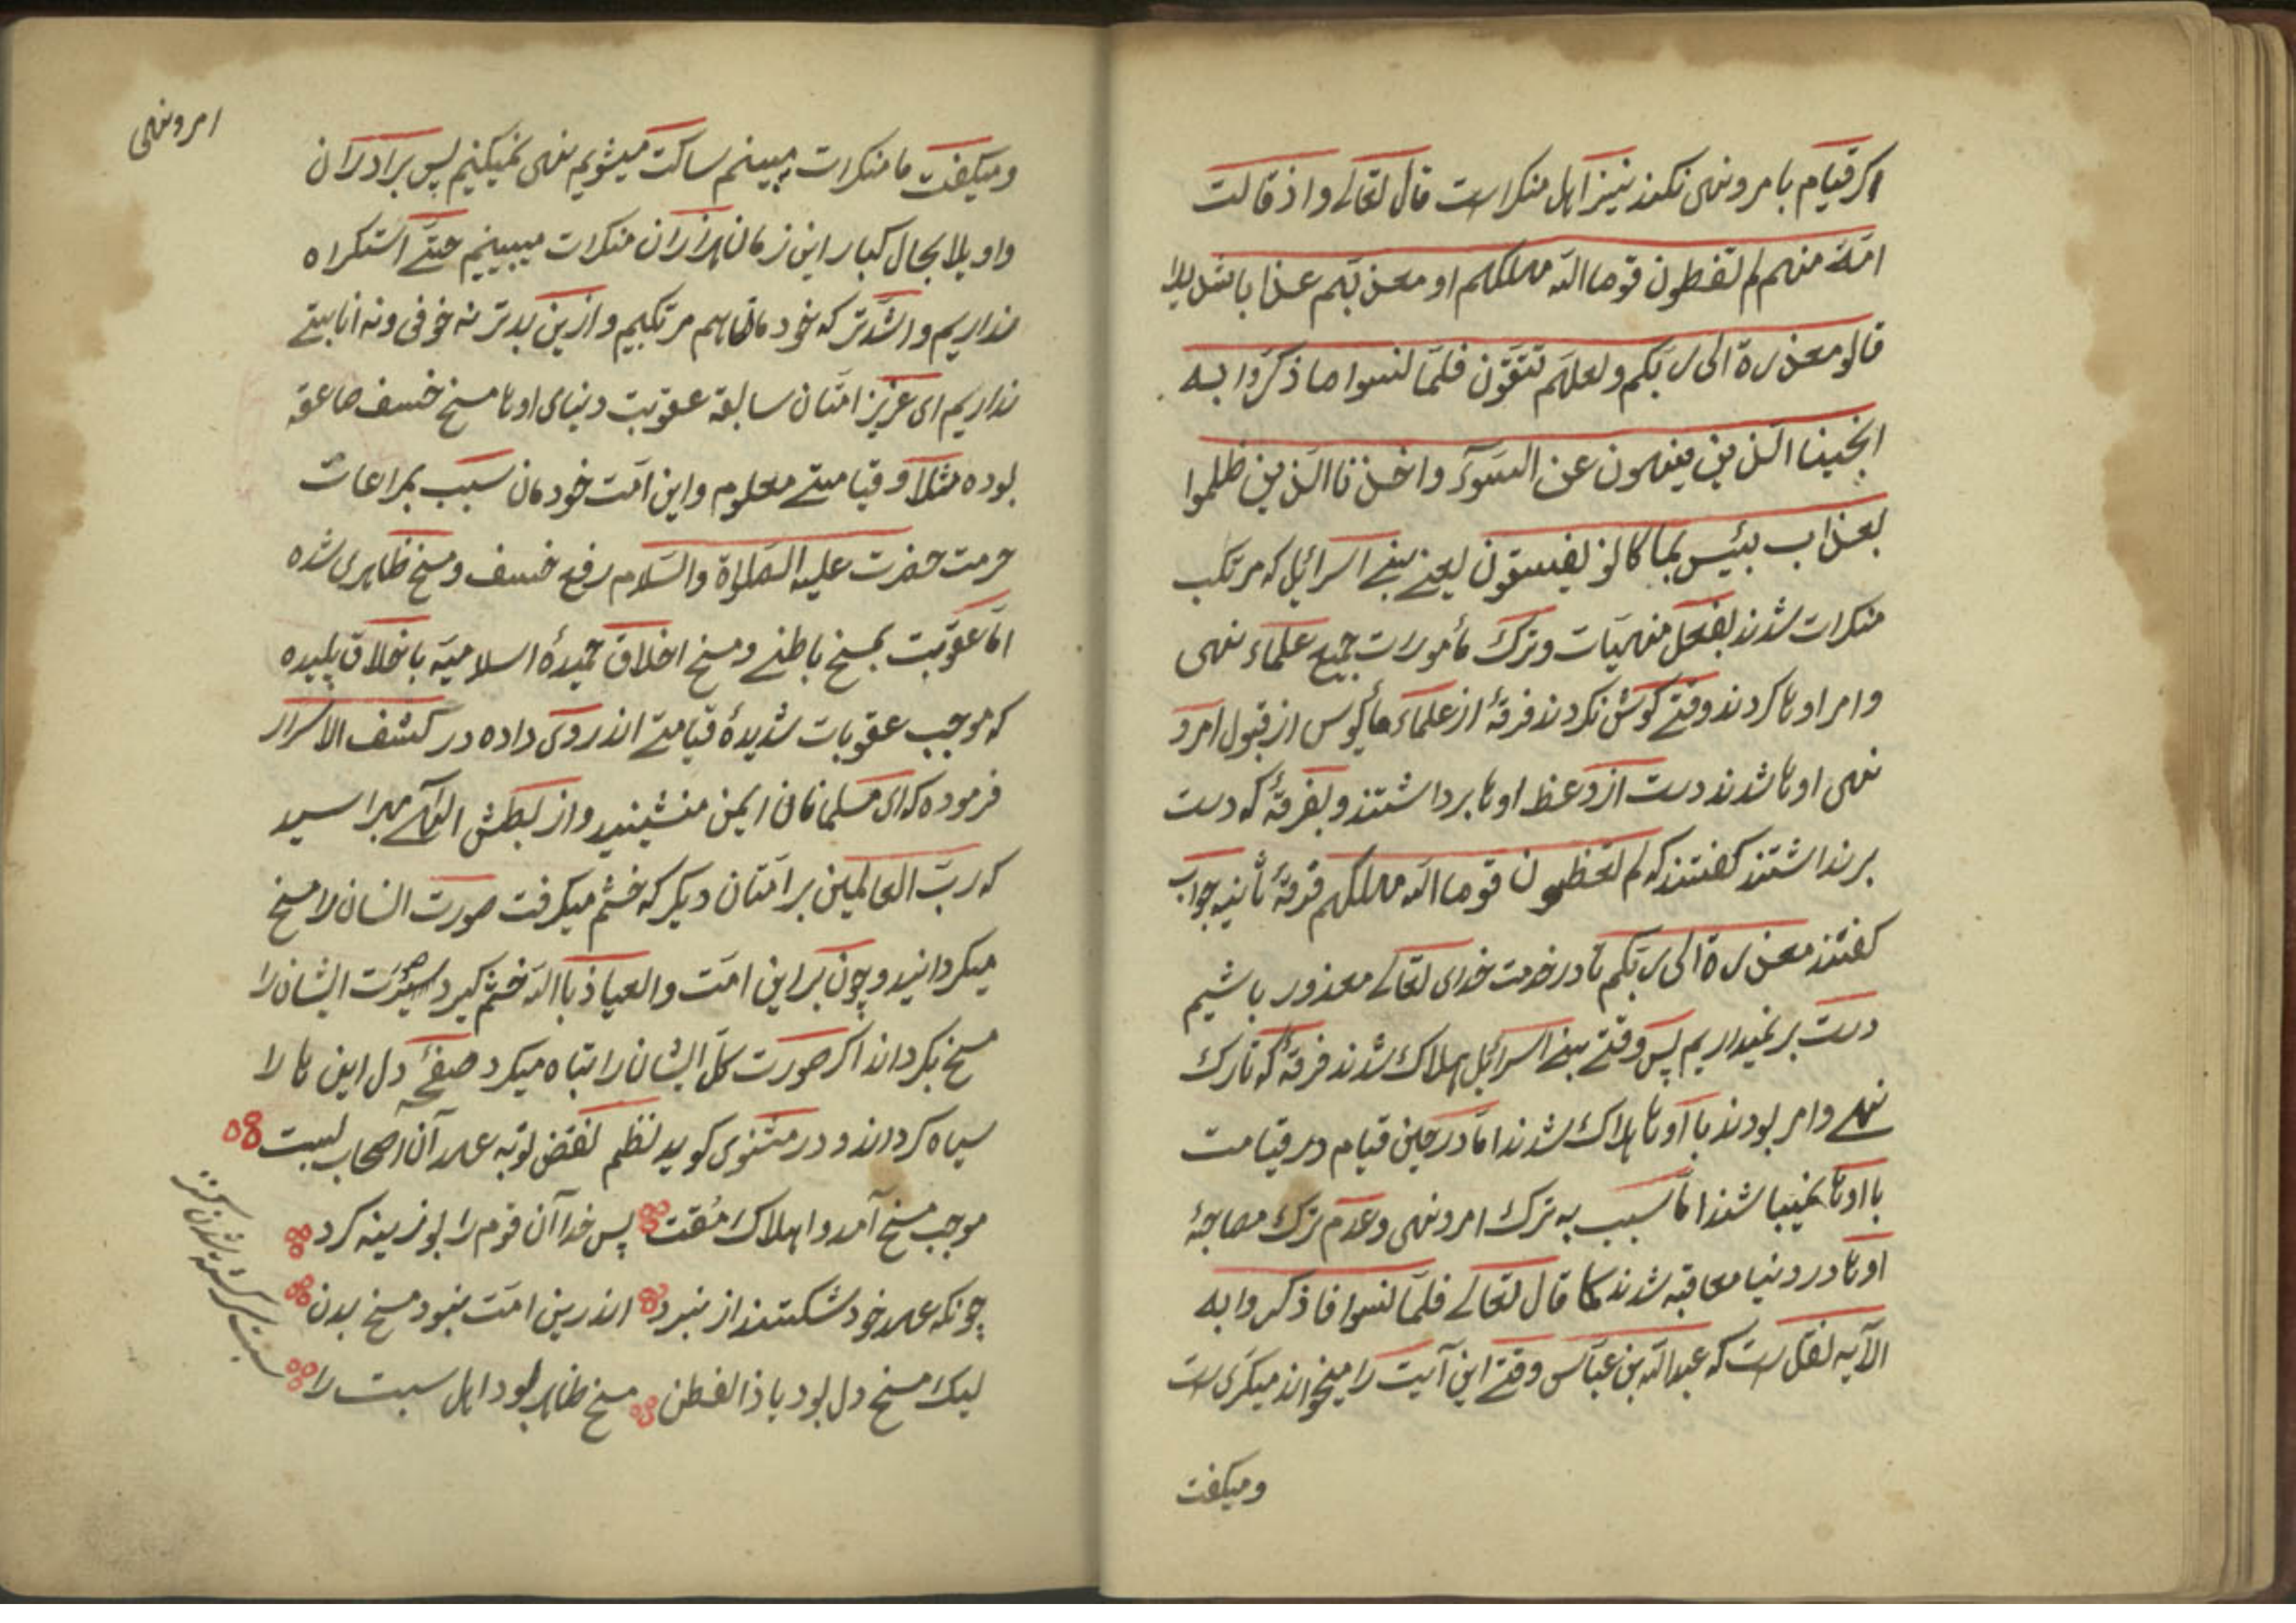 اکر قیام بامر و نهی نکنند نیز اهل منکر است قال تعالے و اذ قالت
امّة منهم لم تعظون قوما الله مهلکهم او معذّبهم عذابا شدیدا
قالو معذرة الی ربّکم ولعلّهم یتّقون فلمّا نسوا ما ذکّروا به
انجینا الّذین ینهون عن السّوء واخذنا الّذین ظلموا
بعذاب بئیس بما کانو یفسقون یعنے بنے اسرائیل که مرتکب
منکرات شدند بفعل منهیّات وترک مأمورات جمیع علماء نهی
وامر اوها کردند وقتے کوش نکردند فرقهٔ از علماء مأیوس از قبول امر و
نهی اوها شدند دست از وعظ اوها برداشتند وبفرقهٔ که دست
برنداشتند کفتند که لم تعظون قوما الله مهلکهم فرقهٔ ثانیه جواب
کفتند معذرة الی ربّکم تا در خدمت خدای تعالے معذور باشیم
دست برنمیداریم پس وقتے بنے اسرائیل هلاک شدند فرقهٔ که تارک
نهے وامر بودند با اوها هلاک شدند امّا در حین قیام در قیامت
با اوها نمیباشند امّا سبب به ترک امر ونهی وعدم ترک مصاحبهٔ
اوها در دنیا معاقبه شدند کما قال تعالے فلمّا نسوا ما ذکروا به
الآیه نقل است که عبدالله بن عبّاس وقتے این آیت را میخواند میکریست
ومیکفت
امر و نهی
ومیکفت ما منکرات میبینم ساکت میشویم نهی نمیکنیم پس برادران
واویلا بحال کبار این زمان هزاران منکرات میبینیم حتّے استکراه
نداریم واشدّتر که خودمانها هم مرتکبیم وازین بدتر نه خوفی ونه انابتے
نداریم ای عزیز امّتان سابقة عقوبت دنیای اوها مسخ خسف صاعقه
بوده مثلا و قیامتے معلوم واین امّت خودمان سبب بمراعات
حرمت حضرت علیه الصّلواة والسّلام رفع خسف ومسخ ظاهری شده
امّا عقوبت بمسخ باطنے ومسخ اخلاق حمیدهٔ اسلامیّه باخلاق پلیده
که موجب عقوبات شدیدهٔ قیامتے اند روی داده در کشف الاسرار
فرموده که ای مسلمانان ایمن منشینید واز بطش الهے بهراسید
که ربّ العالمین بر امّتان دیکر که خشم میکرفت صورت انسان را مسخ
میکردانید وچون بر این امّت والعیاذ باالله خشم کیرد سیرت ایشان را
مسخ بکرداند اکر صورت کلّ ایشان را تباه میکرد صفحهٔ دل این ها را
سیاه کرداند و در مثنوی کوید نظم نقض توبه عهد آن اصحاب سبت
موجب مسخ آمد و اهلاک مقت پس خدا آن قوم را بوزینه کرد
چونکه عهد خود شکستند از نبرد اندرین امّت نبود مسخ بدن
لیک مسخ دل بود یا ذالفطن مسخ ظاهر بود اهل سبت را